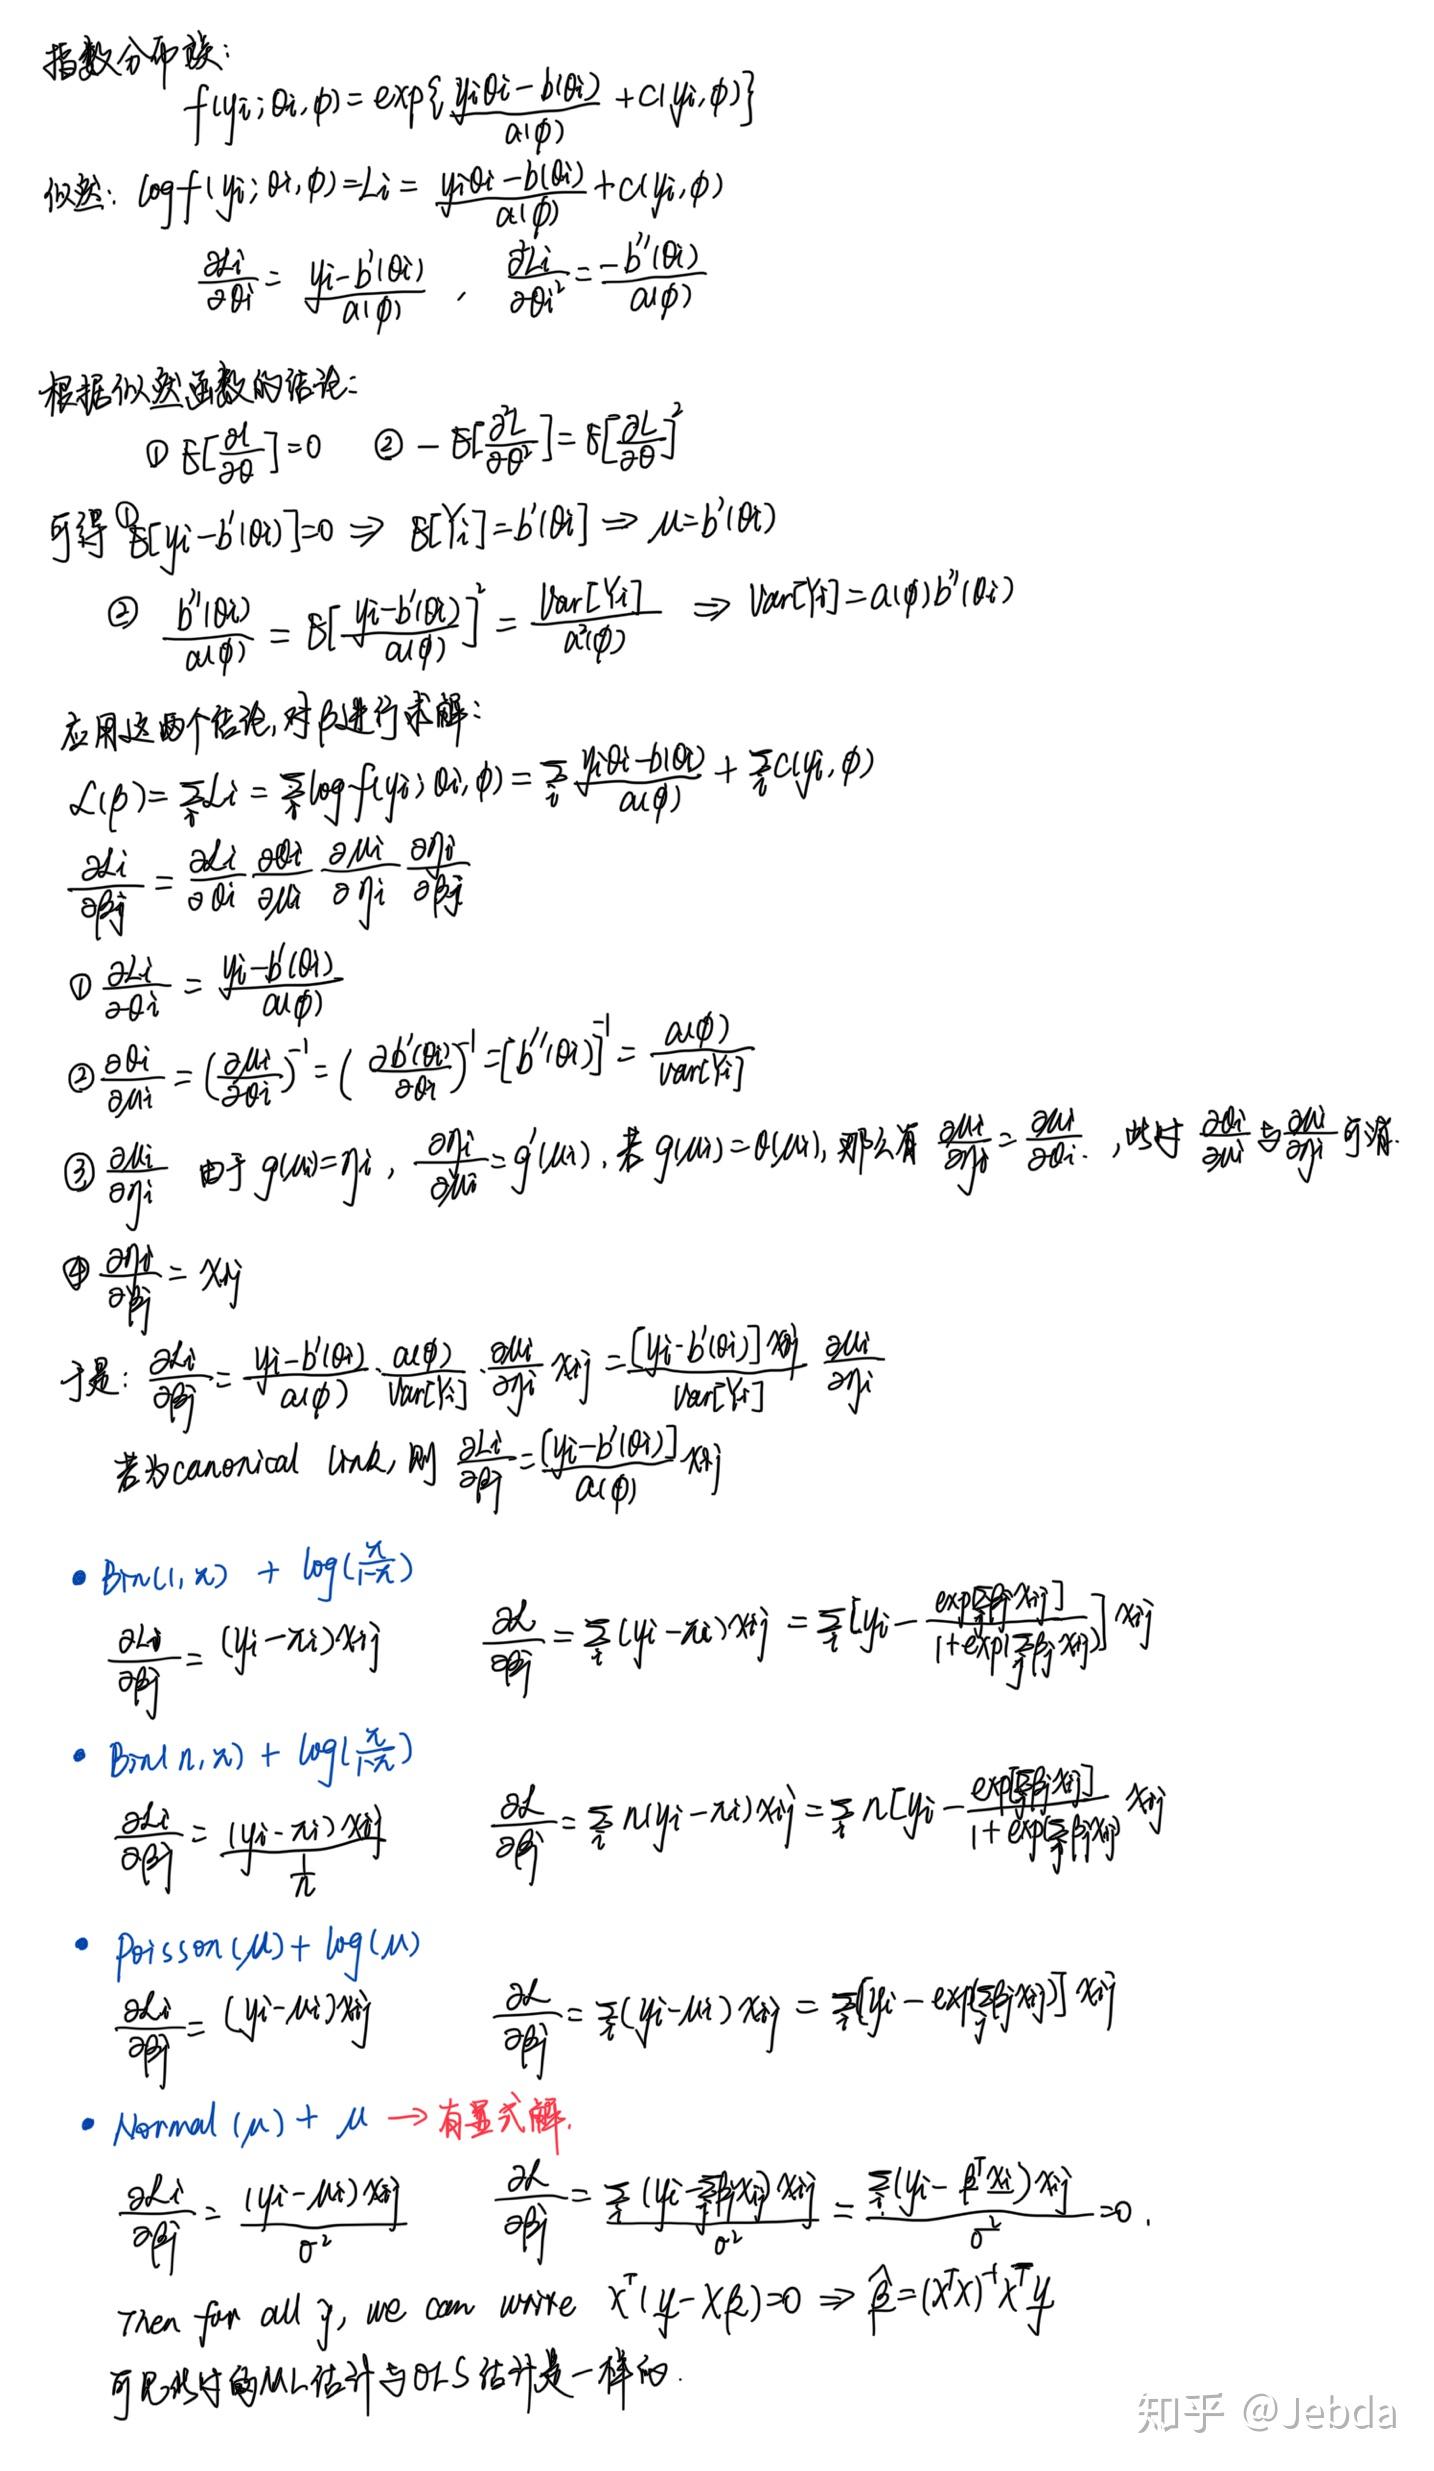 指数分布族:
f(yi; θi, φ) = exp{ (yiθi − b(θi)) / a(φ) + c(yi, φ) }
似然: log f(yi; θi, φ) = Li = (yiθi − b(θi)) / a(φ) + c(yi, φ)
∂Li/∂θi = (yi − b′(θi)) / a(φ) , ∂²Li/∂θi² = −b″(θi) / a(φ)
根据似然函数的结论:
① E[∂L/∂θ] = 0 ② −E[∂²L/∂θ²] = E[∂L/∂θ]²
可得 ① E[yi − b′(θi)] = 0 ⇒ E[Yi] = b′(θi] ⇒ μ = b′(θi)
② b″(θi)/a(φ) = E[(yi − b′(θi))/a(φ)]² = Var[Yi]/a²(φ) ⇒ Var[Yi] = a(φ)b″(θi)
应用这两个结论, 对β进行求解:
L(β) = ∑i Li = ∑i log f(yi; θi, φ) = ∑i (yiθi − b(θi))/a(φ) + ∑i c(yi, φ)
∂Li/∂βj = ∂Li/∂θi ∂θi/∂μi ∂μi/∂ηi ∂ηi/∂βj
① ∂Li/∂θi = (yi − b′(θi))/a(φ)
② ∂θi/∂μi = (∂μi/∂θi)⁻¹ = (∂b′(θi)/∂θi)⁻¹ = [b″(θi)]⁻¹ = a(φ)/Var[Yi]
③ ∂μi/∂ηi 由于 g(μi) = ηi, ∂ηi/∂μi = g′(μi), 若 g(μi) = θ(μi), 那么有 ∂μi/∂ηi = ∂μi/∂θi. , 此时 ∂θi/∂μi 与 ∂μi/∂ηi 可消.
④ ∂ηi/∂βj = xij
于是: ∂Li/∂βj = (yi − b′(θi))/a(φ) · a(φ)/Var[Yi] · ∂μi/∂ηi xij = [yi − b′(θi)] xij/Var[Yi] ∂μi/∂ηi
若为canonical link, 则 ∂Li/∂βj = [yi − b′(θi)]/a(φ) xij
• Bin(1, π) + log(π/(1−π))
∂Li/∂βj = (yi − πi)xij ∂L/∂βj = ∑i (yi − πi)xij = ∑i [yi − exp[∑j βj xij]/(1+exp(∑j βj xij))] xij
• Bin(n, π) + log(π/(1−π))
∂Li/∂βj = (yi − πi)xij/(1/n) ∂L/∂βj = ∑i n(yi − πi)xij = ∑i n[yi − exp[∑j βj xij]/(1+exp(∑j βj xij)] xij
• Poisson(μ) + log(μ)
∂Li/∂βj = (yi − μi)xij ∂L/∂βj = ∑i (yi − μi)xij = ∑i [yi − exp(∑j βj xij)] xij
• Normal(μ) + μ → 有显式解.
∂Li/∂βj = (yi − μi)xij/σ² ∂L/∂βj = ∑i (yi − ∑j βj xij)xij/σ² = ∑i (yi − βᵀxi)xij/σ² = 0 .
Then for all j, we can write Xᵀ(y − Xβ) = 0 ⇒ β̂ = (XᵀX)⁻¹Xᵀy
可见此时的ML估计与OLS估计是一样的.
知乎 @Jebda